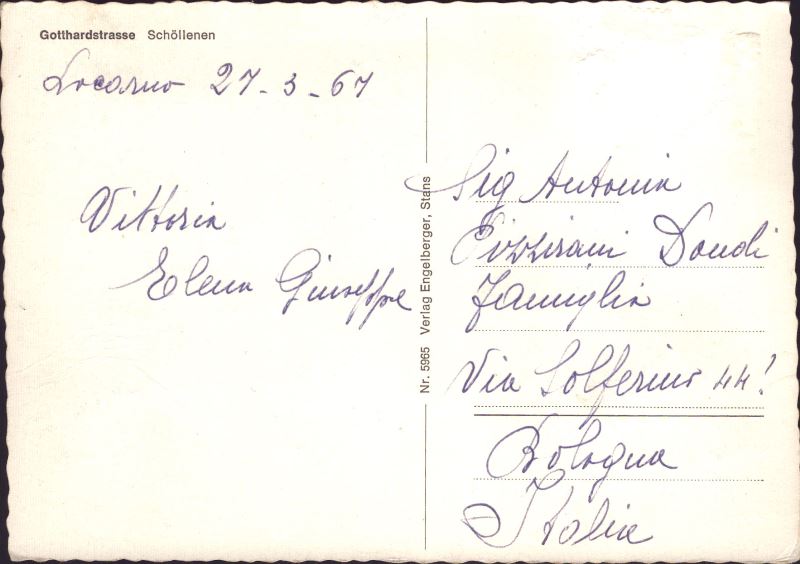 Gotthardstrasse Schöllenen
Locarno 27-3-67
Vittoria
Elena Giuseppe
Nr. 5965 Verlag Engelberger, Stans
Sig Antonia
Dondi
Famiglia
Via Solferino 44
Bologna
Italia